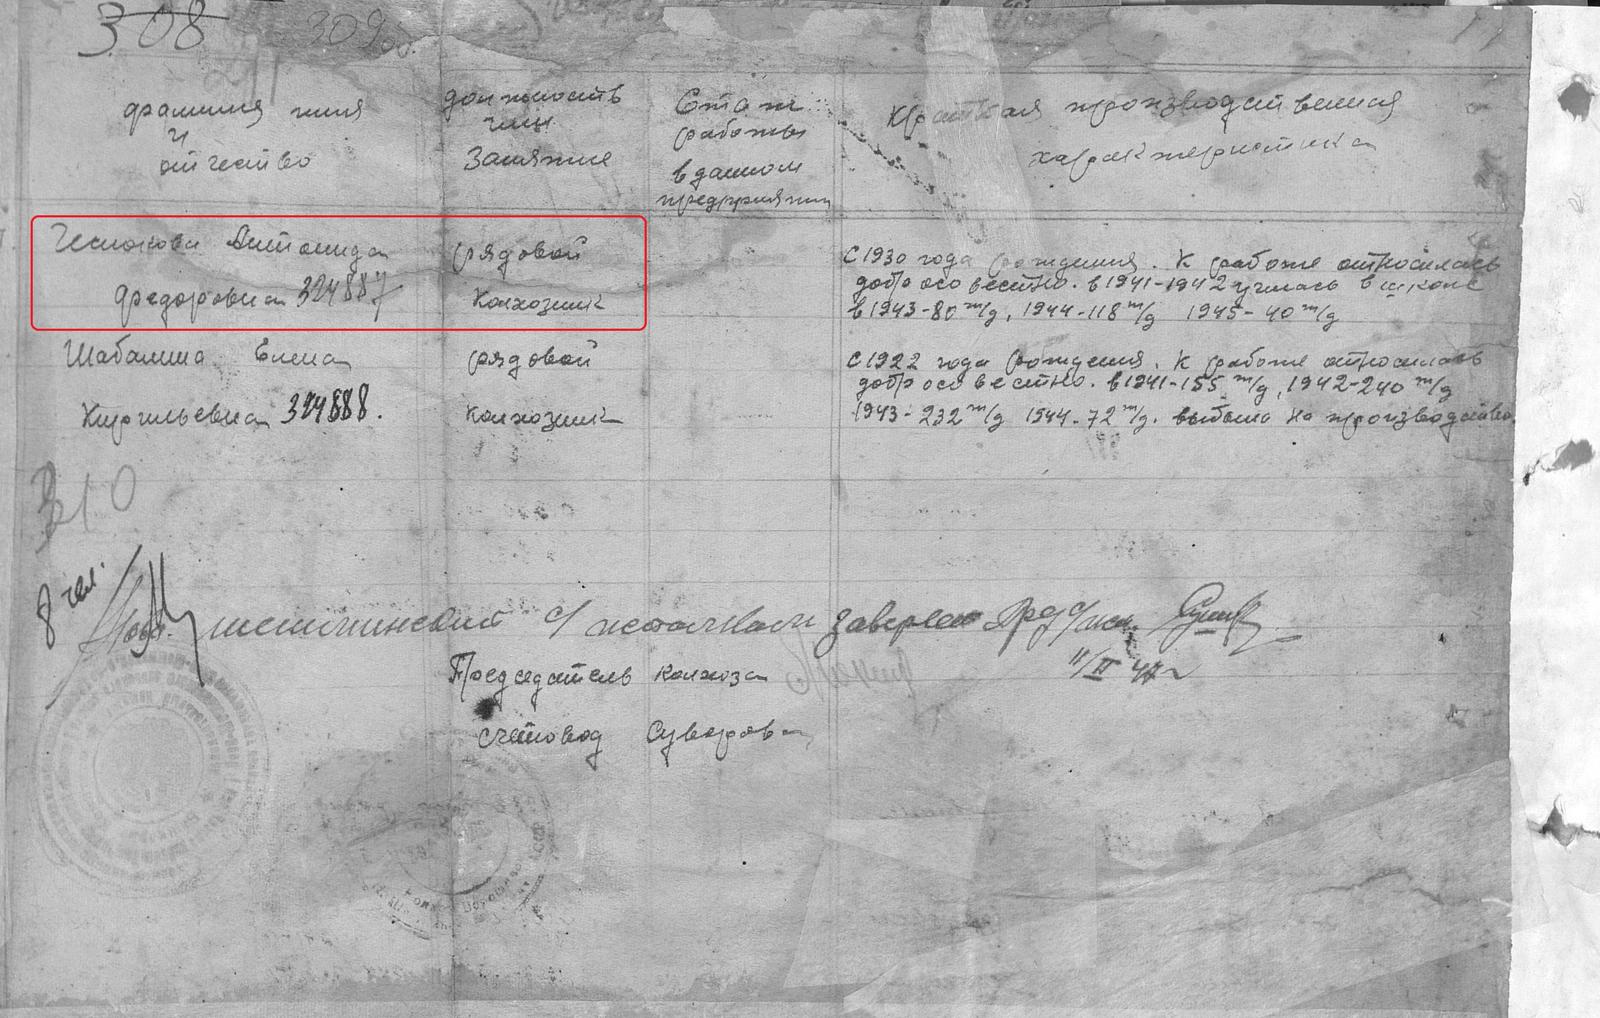 308 309об.
фамилия имя
и
отчество
должность
или
Занятие
Стаж
работы
в данном
предприятии
Краткая производственная
характеристика
Чеснокова Антонида
Федоровна 324887
рядовой
Колхозник
С 1930 года рождения. К работе относилась
добросовестно. в 1941-1942 училась в школе
в 1943-80 т/д, 1944-118 т/д 1945-40 т/д
Шабалина Елена
Кирильевна 324888.
рядовой
колхозник
С 1922 года рождения. К работе относилась
добросовестно. в 1941-155 т/д, 1942-240 т/д
1943-232 т/д 1944-72 т/д. выбыла на производство.
310
8 чел.
с/ исполком заверяет
11/II 47 г
Председатель колхоза
счетовод Суворова